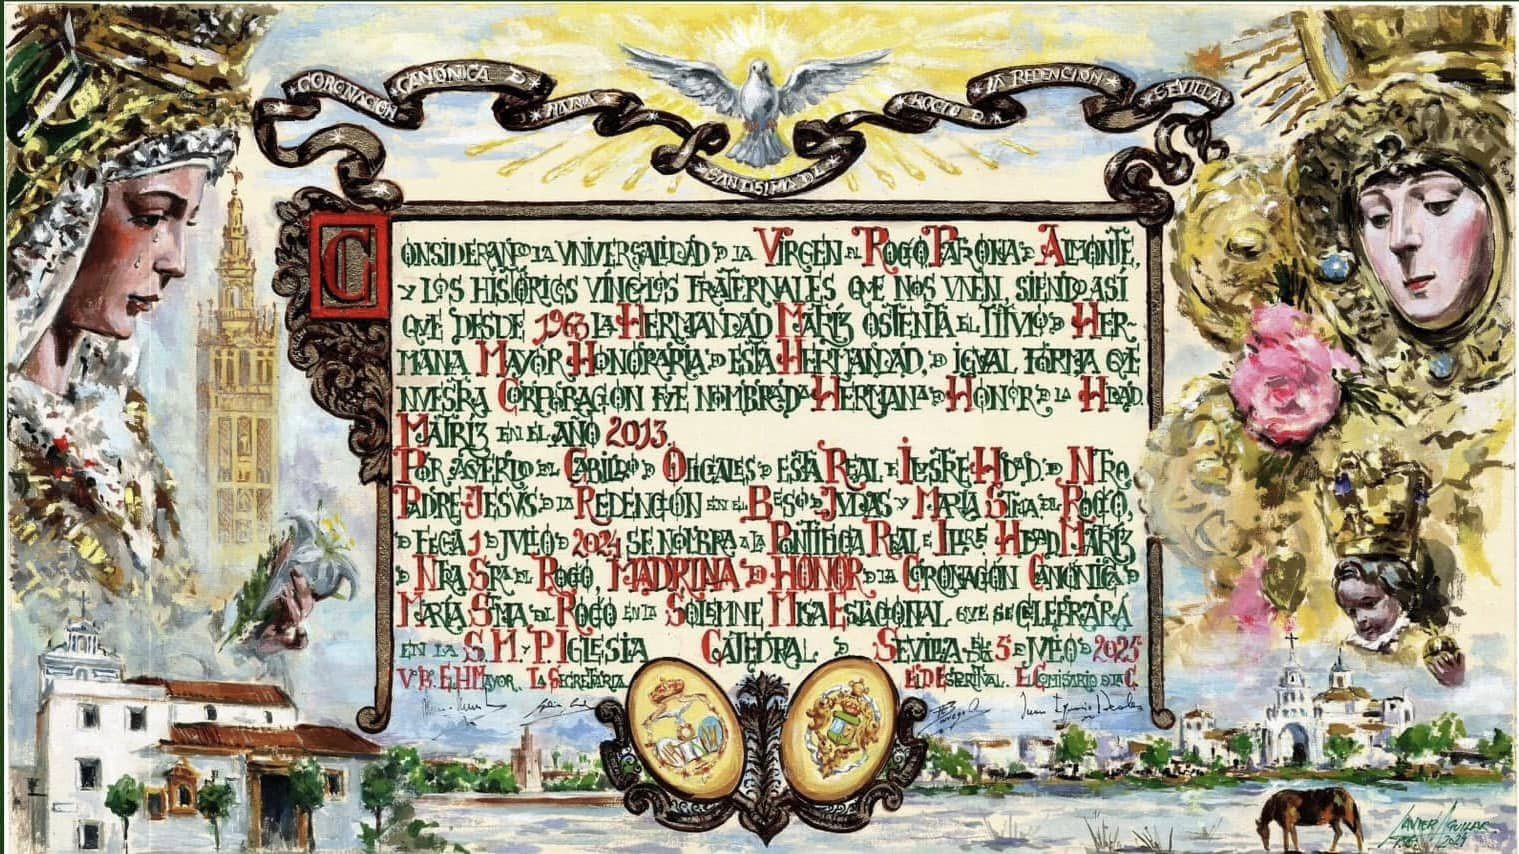 CORONACIÓN CANÓNICA D MARIA SANTISIMA DEL ROCIO D LA REDENCIÓN SEVILLA
CONSIDERANDO LA VNIVERSALIDAD D LA VIRGEN EL ROCIO PATRONA D ALMONTE,
Y LOS HISTÓRICOS VÍNCVLOS FRATERNALES QVE NOS VNEN, SIENDO ASÍ
QVE DESDE 1963 LA HERMANDAD MATRÍZ OSTENTA EL TITVLO D HER-
MANA MAYOR HONORARIA D ESTA HERMANDAD, D IGVAL FORMA QVE
NVESTRA CORPORACION FVE NOMBRADA HERMANA D HONOR D LA HDAD.
MATRÍZ EN EL AÑO 2013.
POR ACVERDO DEL CABILDO D OFICIALES D ESTA REAL E ILVSTRE HDAD. D NTRO.
PADRE JESVS D LA REDENCIÓN EN EL BESO D JVDAS Y MARÍA STMA. DEL ROCIO,
D FECHA 1 D JVLIO D 2024 SE NOMBRA A LA PONTIFICIA REAL E ILTRE. HDAD MATRÍZ
D NTRA. SRA. EL ROCIO, MADRINA D HONOR D LA CORONACIÓN CANÓNICA D
MARÍA STMA. DEL ROCIO EN LA SOLEMNE MISA ESTACIONAL QVE SE CELEBRARÁ
EN LA S.M. Y P. IGLESIA CATEDRAL D SEVILLA EL 5 D JVLIO D 2025
Vº Bº. EL H MAYOR. LA SECRETARIA. EL D ESPIRITVAL. EL COMISARIO D LA C.
JAVIER AGUILAR
2024